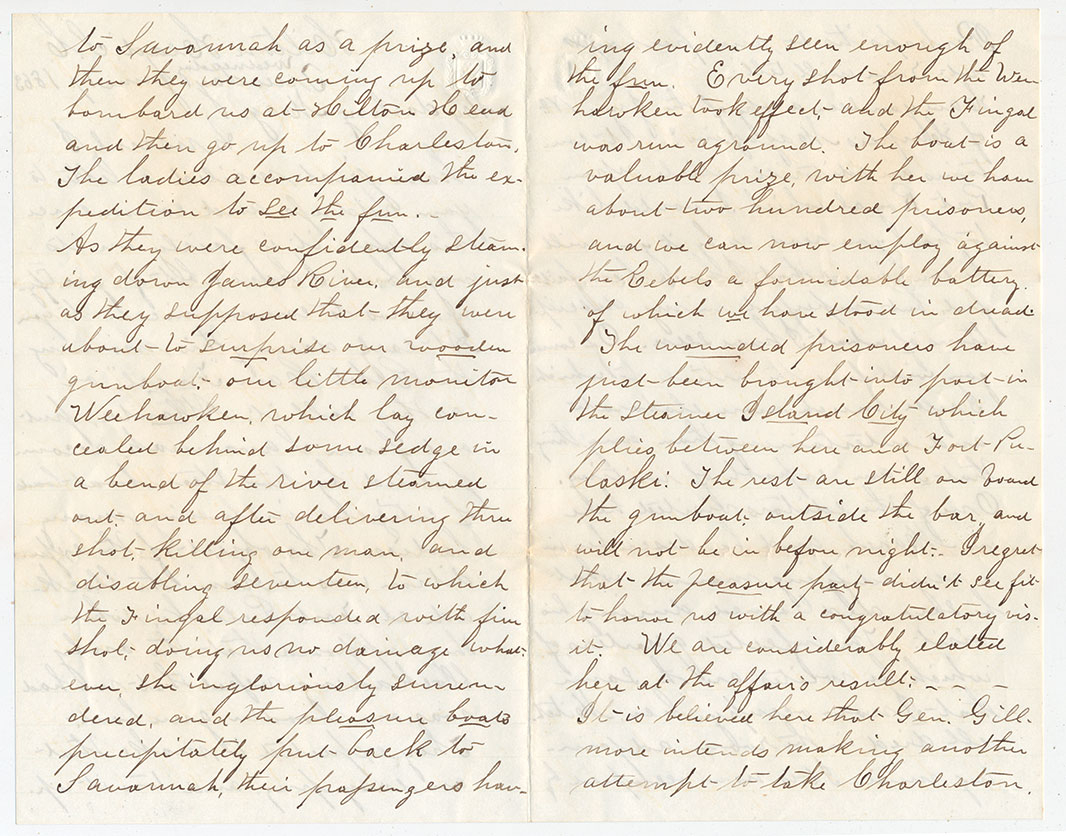 to Savannah as a prize, and
then they were coming up to
bombard us at Hilton Head
and then go up to Charleston.
The ladies accompanied the ex-
pedition to see the fun. -
As they were confidently steam-
ing down James River, and just
as they supposed that they were
about to surprise our wooden
gunboat, our little monitor
Weehawken, which lay con-
cealed behind some sedge in
a bend of the river steamed
out, and after delivering three
shot, killing one man, and
disabling seventeen, to which
the Fingal responded with five
shot, doing us no damage what-
ever, she ingloriously surren-
dered, and the pleasure boats
precipitately put back to
Savannah, their passengers hav-
ing evidently seen enough of
the fun. Every shot from the Wee-
hawken took effect, and the Fingal
was run aground. The boat is a
valuable prize, with her we have
about two hundred prisoners,
and we can now employ against
the Rebels a formidable battery
of which we have stood in dread.
The wounded prisoners have
just been brought into port in
the steamer Island City which
plies between here and Fort Pu-
laski. The rest are still on board
the gunboat, outside the bar, and
will not be in before night. I regret
that the pleasure party didn't see fit
to honor us with a congratulatory vis-
it. We are considerably elated
here at the affair's result. - - -
It is believed here that Gen. Gill-
more intends making another
attempt to take Charleston.